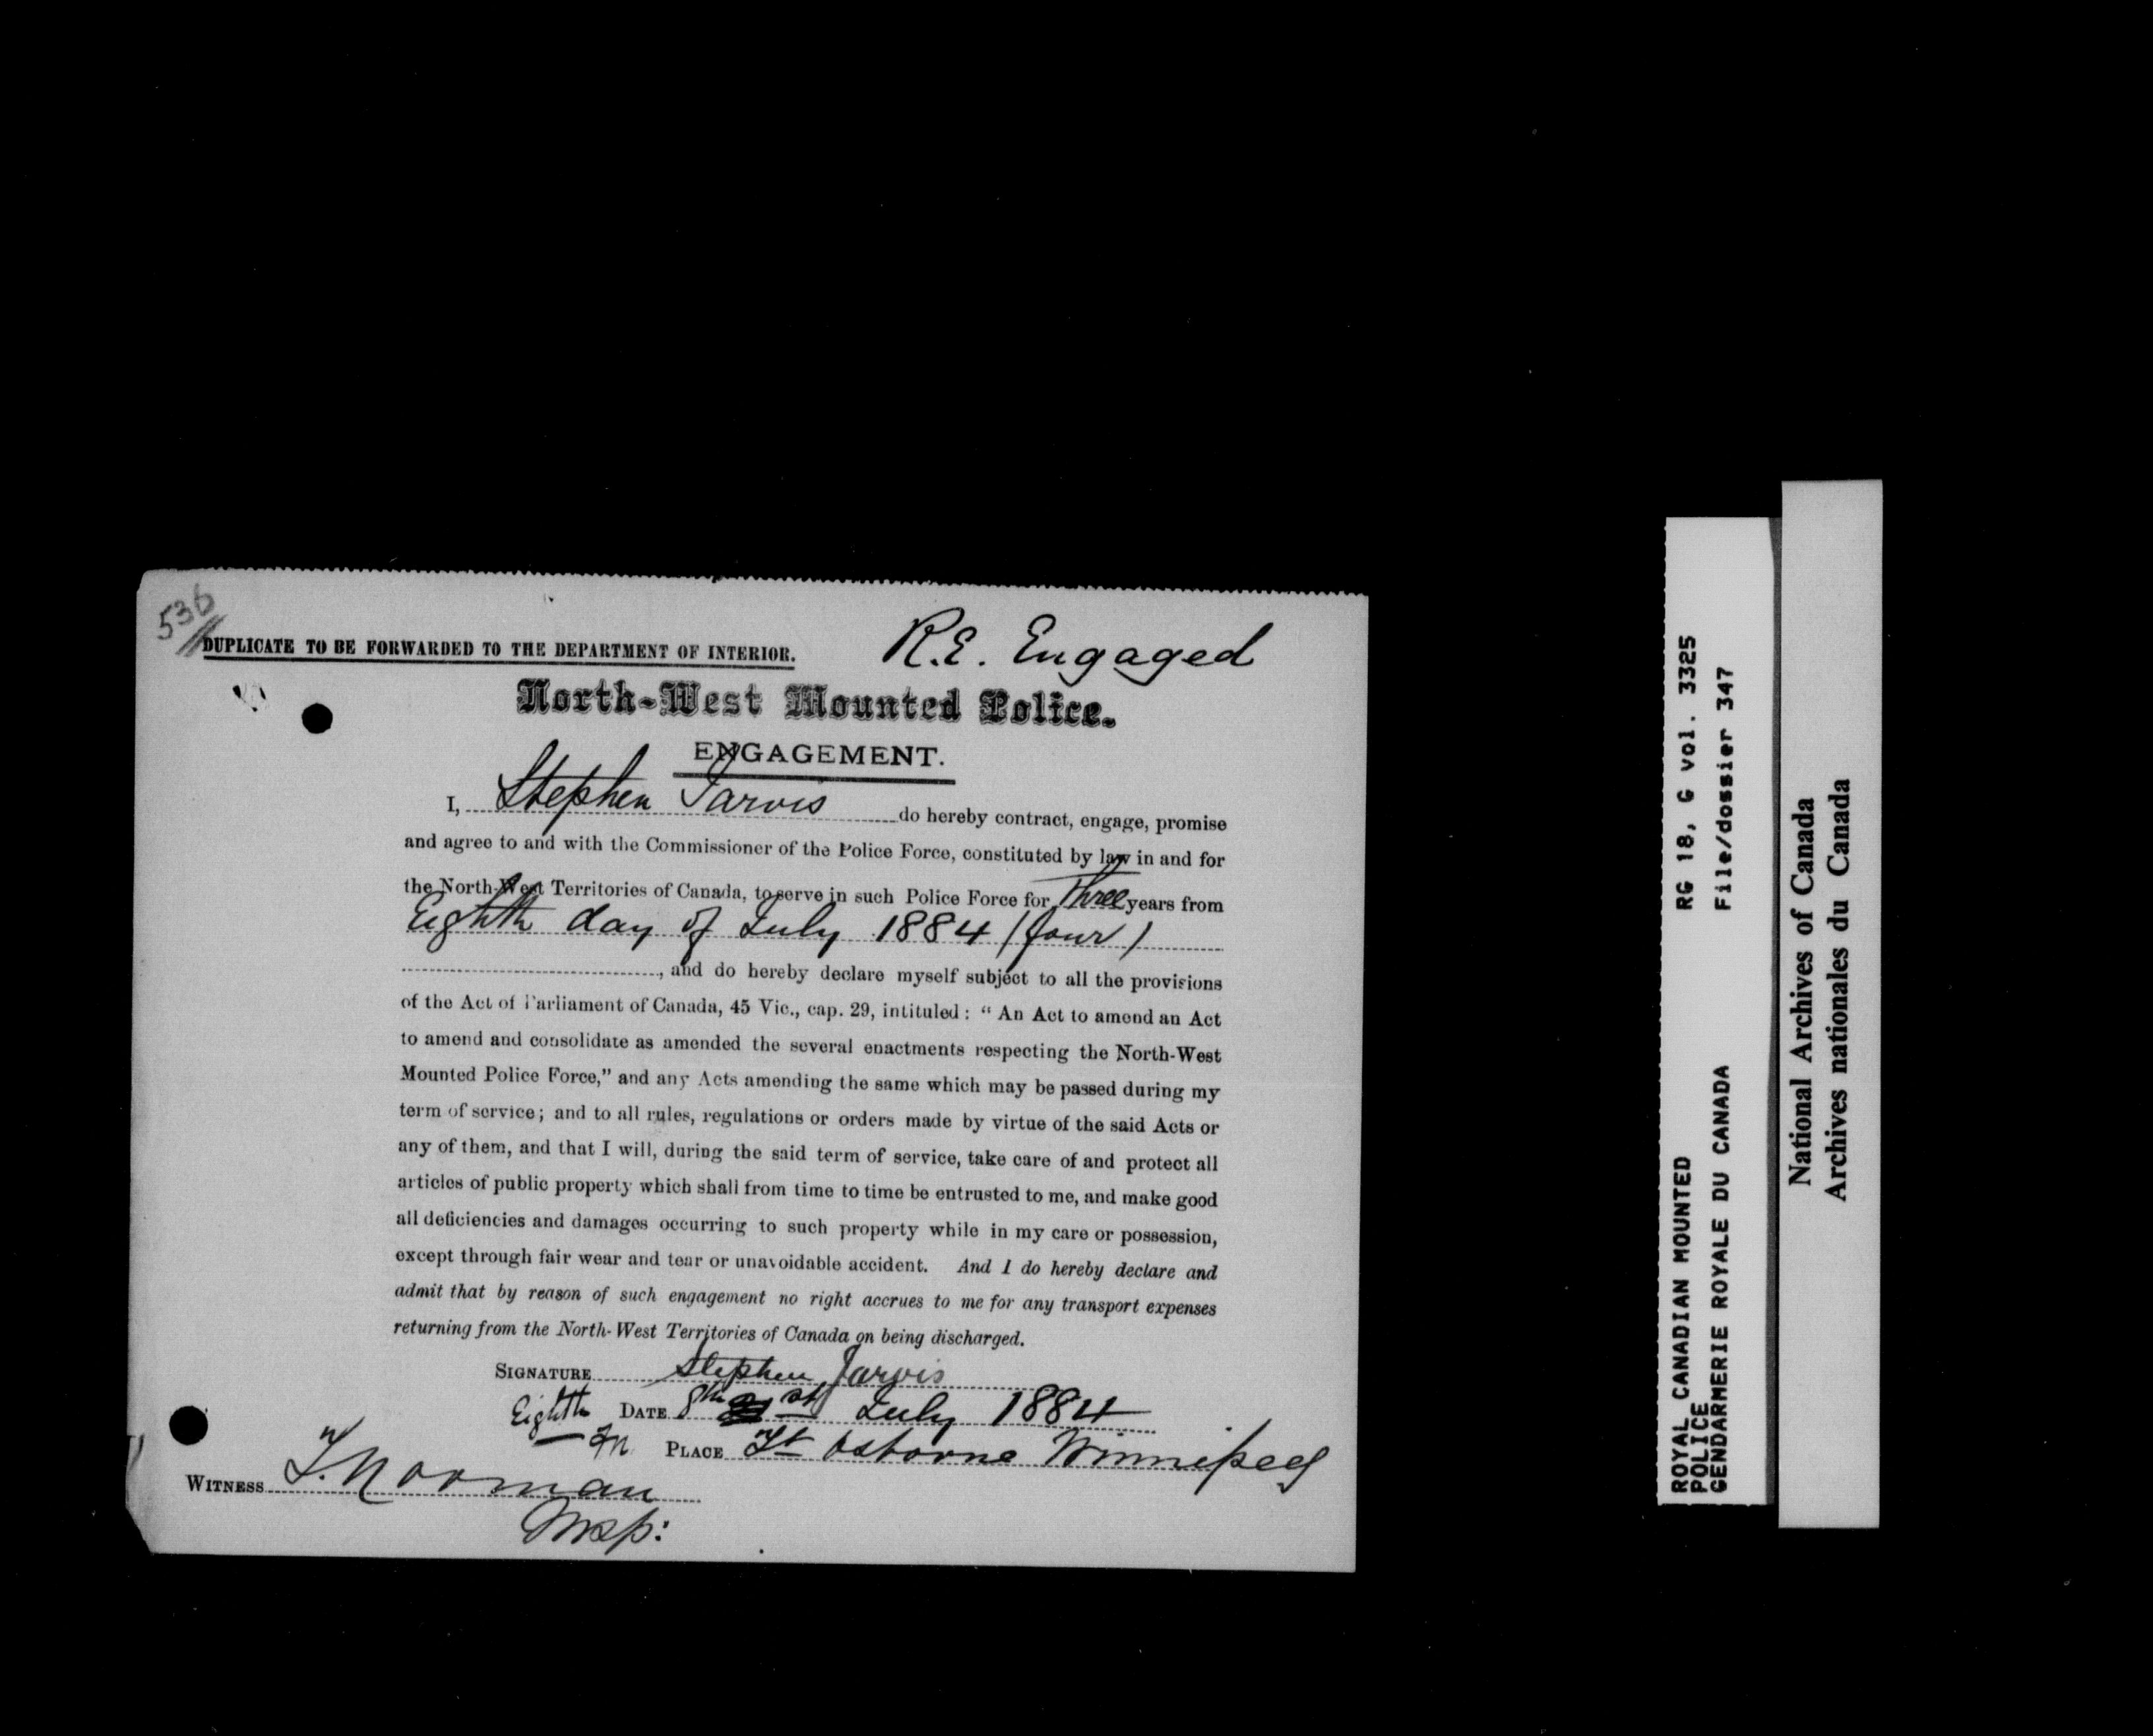 536
DUPLICATE TO BE FORWARDED TO THE DEPARTMENT OF INTERIOR.
R.E. Engaged
North-West Mounted Police.
ENGAGEMENT.
I, Stephen Jarvis do hereby contract, engage, promise
and agree to and with the Commissioner of the Police Force, constituted by law in and for
the North-West Territories of Canada, to serve in such Police Force for Three years from
Eighth day of July 1884 (four)
, and do hereby declare myself subject to all the provisions
of the Act of Parliament of Canada, 45 Vic., cap. 29, intituled: "An Act to amend an Act
to amend and consolidate as amended the several enactments respecting the North-West
Mounted Police Force," and any Acts amending the same which may be passed during my
term of service; and to all rules, regulations or orders made by virtue of the said Acts or
any of them, and that I will, during the said term of service, take care of and protect all
articles of public property which shall from time to time be entrusted to me, and make good
all deficiencies and damages occurring to such property while in my care or possession,
except through fair wear and tear or unavoidable accident. And I do hereby declare and
admit that by reason of such engagement no right accrues to me for any transport expenses
returning from the North-West Territories of Canada on being discharged.
SIGNATURE Stephen Jarvis
Eighth DATE 8th July 1884
PLACE Ft Osborne Winnipeg
WITNESS F. Norman
Insp:
ROYAL CANADIAN MOUNTED RG 18, G vol. 3325
POLICE
GENDARMERIE ROYALE DU CANADA File/dossier 347
National Archives of Canada
Archives nationales du Canada